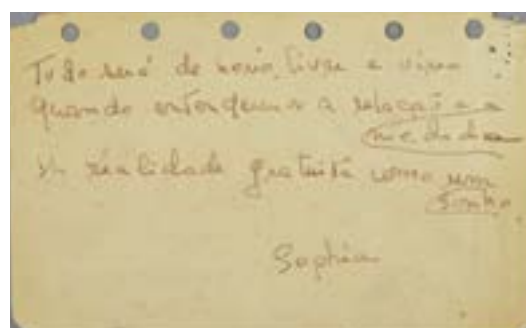 Tudo será de novo livre e vivo
quando entendermos a relação e a
medida
realidade gratuita como um
sonho.
Sophia